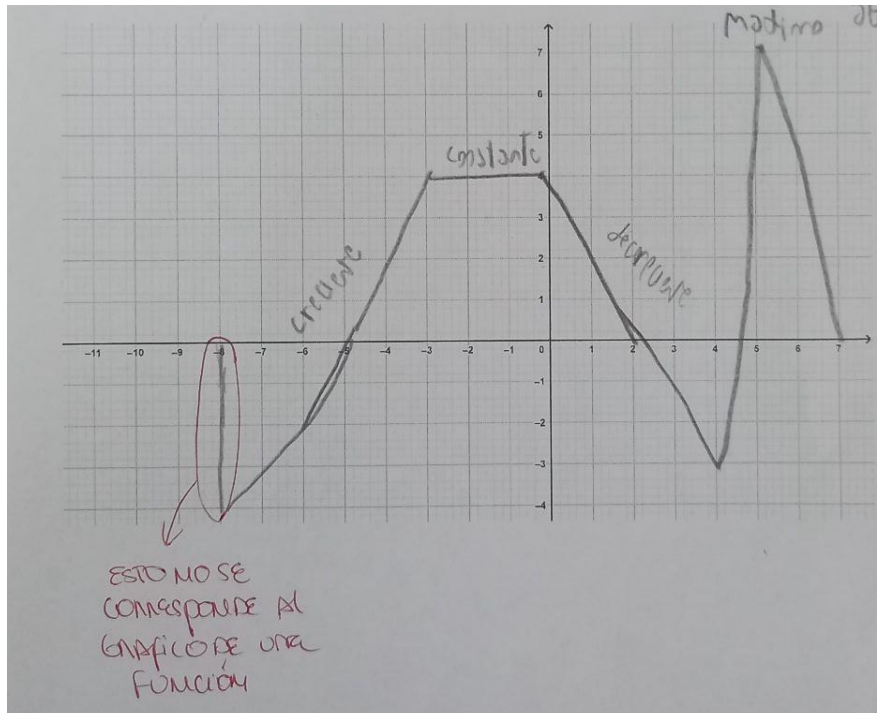 maximo
7
6
5
constante
3
decreciente
2
creciente
1
-11 -10 -9 -8 -7 -6 -5 -4 -3 -2 -1 0 1 2 3 4 5 6 7
-1
-2
-3
-4
ESTO NO SE
CORRESPONDE Al
GRAFICO DE UNA
FUNCIÓN